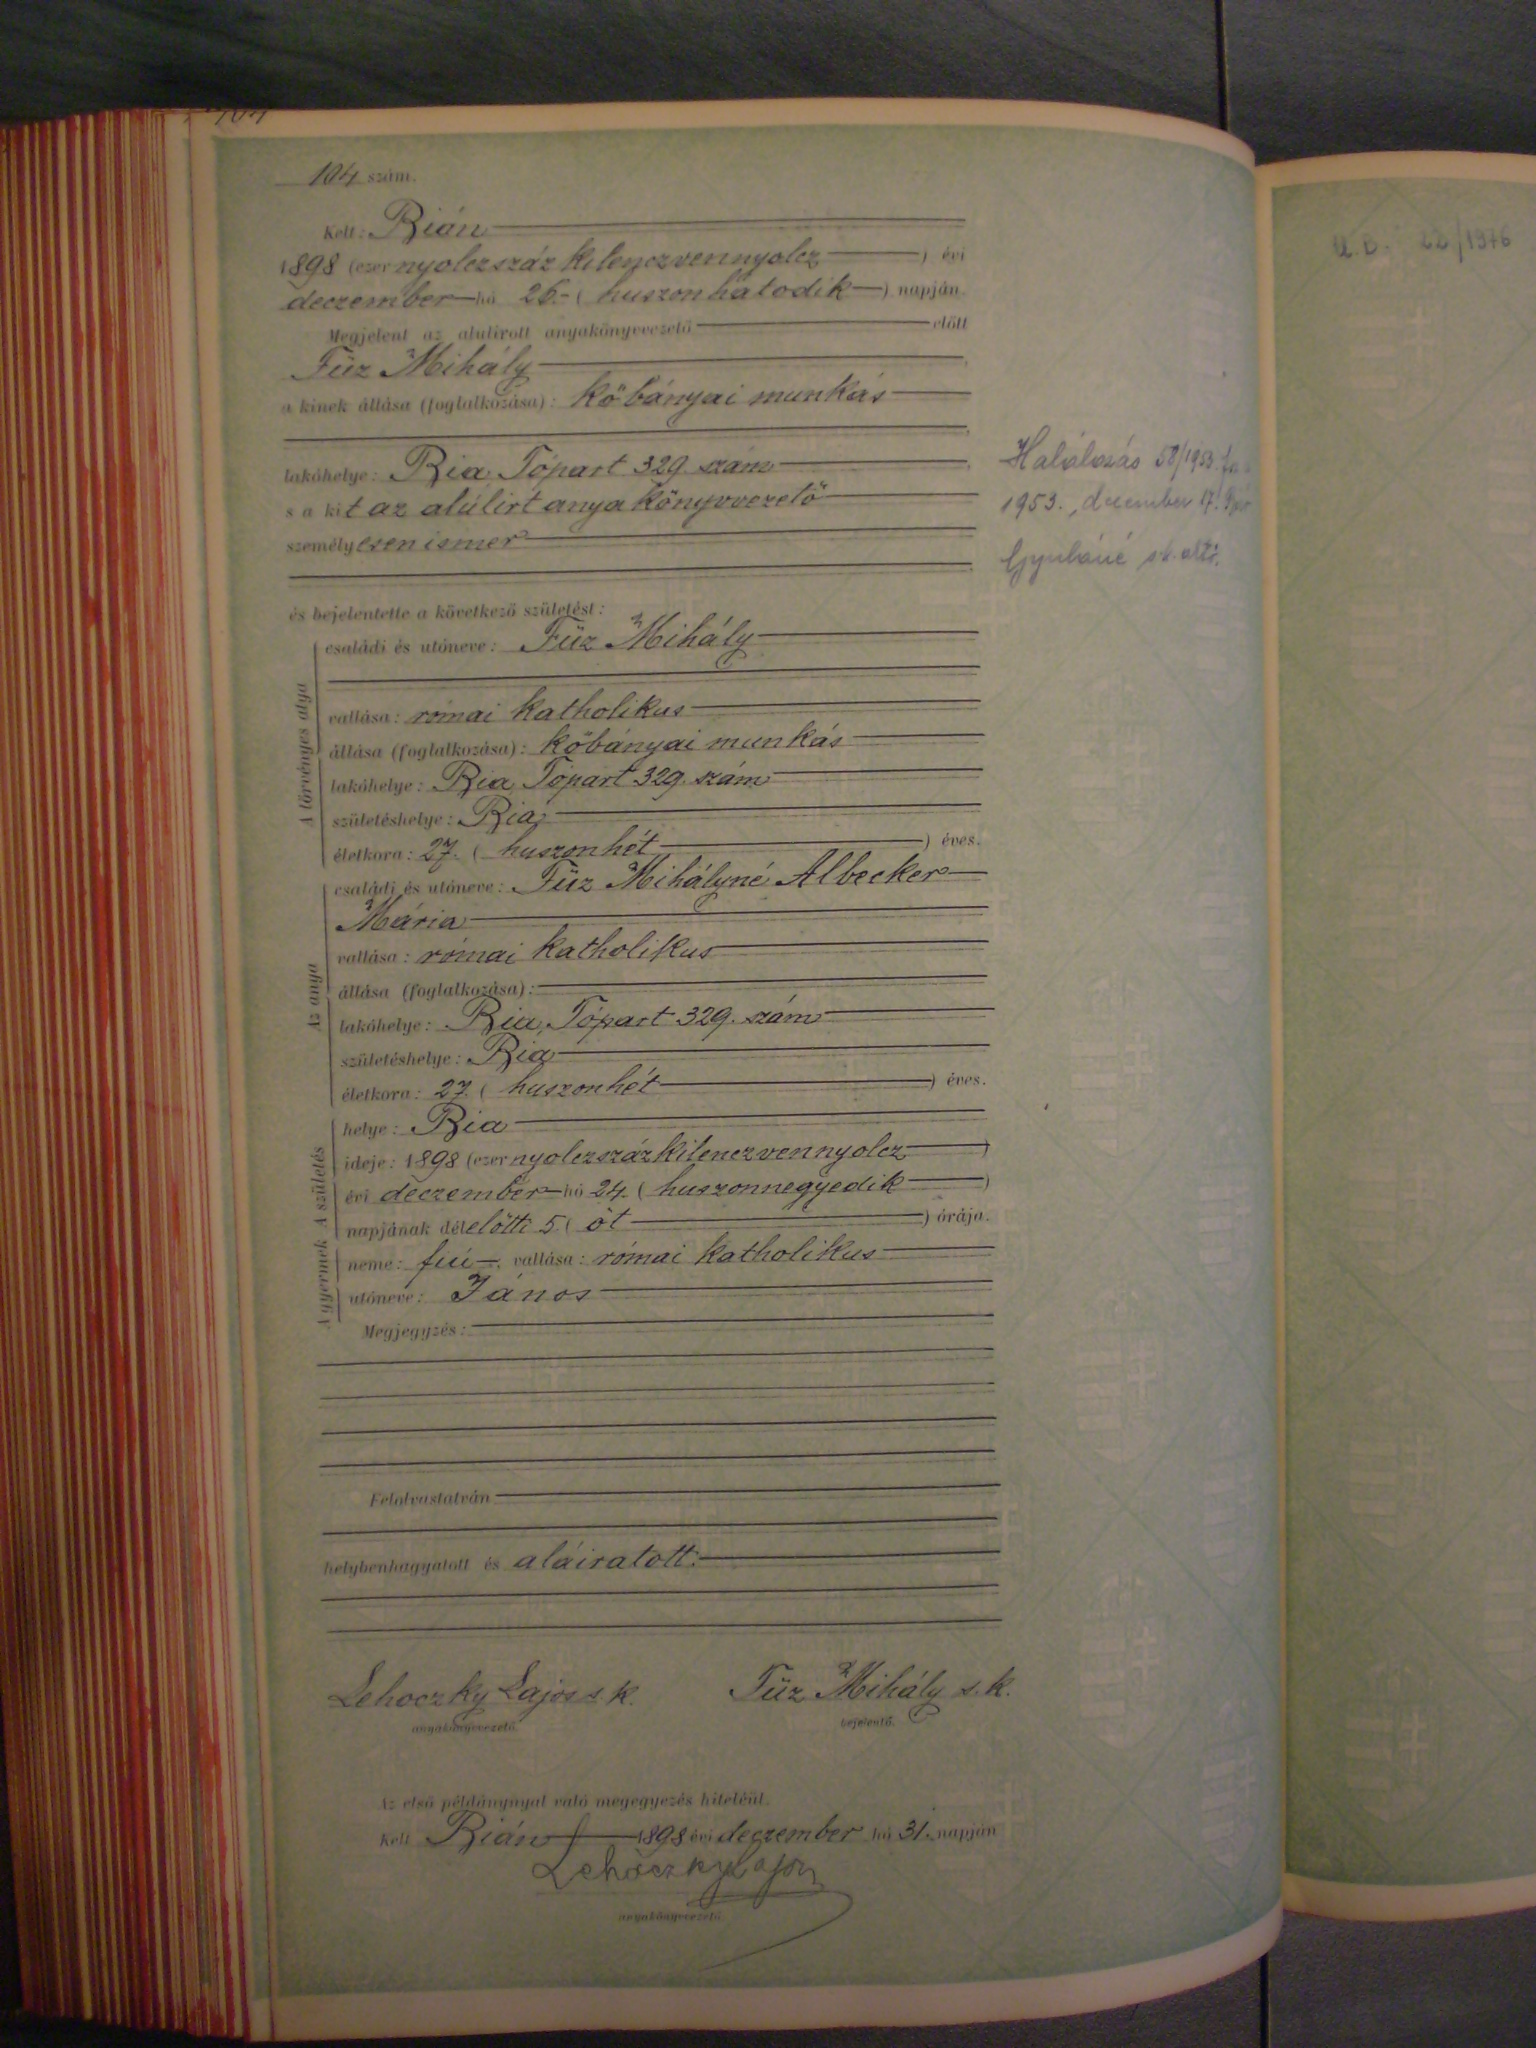 104 szám.
Kelt: Bián
1898 (ezer nyolczszáz kilenczvennyolcz ) évi
deczember hó 26. ( huszonhatodik ) napján.
Megjelent az alulirott anyakönyvvezető előtt
Füz Mihály
a kinek állása (foglalkozása): kőbányai munkás
lakóhelye: Bia, Tópart 329 szám
s a kit az alúlirt anyakönyvvezető
személyesen ismer
és bejelentette a következő születést:
A törvényes atya
családi és utóneve: Füz Mihály
vallása: római katholikus
állása (foglalkozása): kőbányai munkás
lakóhelye: Bia, Tópart 329. szám
születéshelye: Bia
életkora: 27. ( huszonhét ) éves.
Az anya
családi és utóneve: Füz Mihályné Albecker
Mária
vallása: római katholikus
állása (foglalkozása):
lakóhelye: Bia, Tópart 329. szám
születéshelye: Bia
életkora: 27. ( huszonhét ) éves.
A születés
helye: Bia
ideje: 1898 (ezer nyolczszázkilenczvennyolcz )
évi deczember hó 24. ( huszonnegyedik )
napjának délelőtti 5 ( öt ) órája.
A gyermek
neme: fiú, vallása: római katholikus
utóneve: János
Megjegyzés:
Felolvastatván
helybenhagyatott és aláiratott.
Lehoczky Lajos s. k. Füz Mihály s. k.
anyakönyvvezető. bejelentő.
Az első példánynyal való megegyezés hiteléül.
Kelt Bián 1898 évi deczember hó 31. napján
Lehoczky Lajos
anyakönyvvezető
Halálozás 58/1953.
1953. december 17.
Gyuláné sk.
22/1976